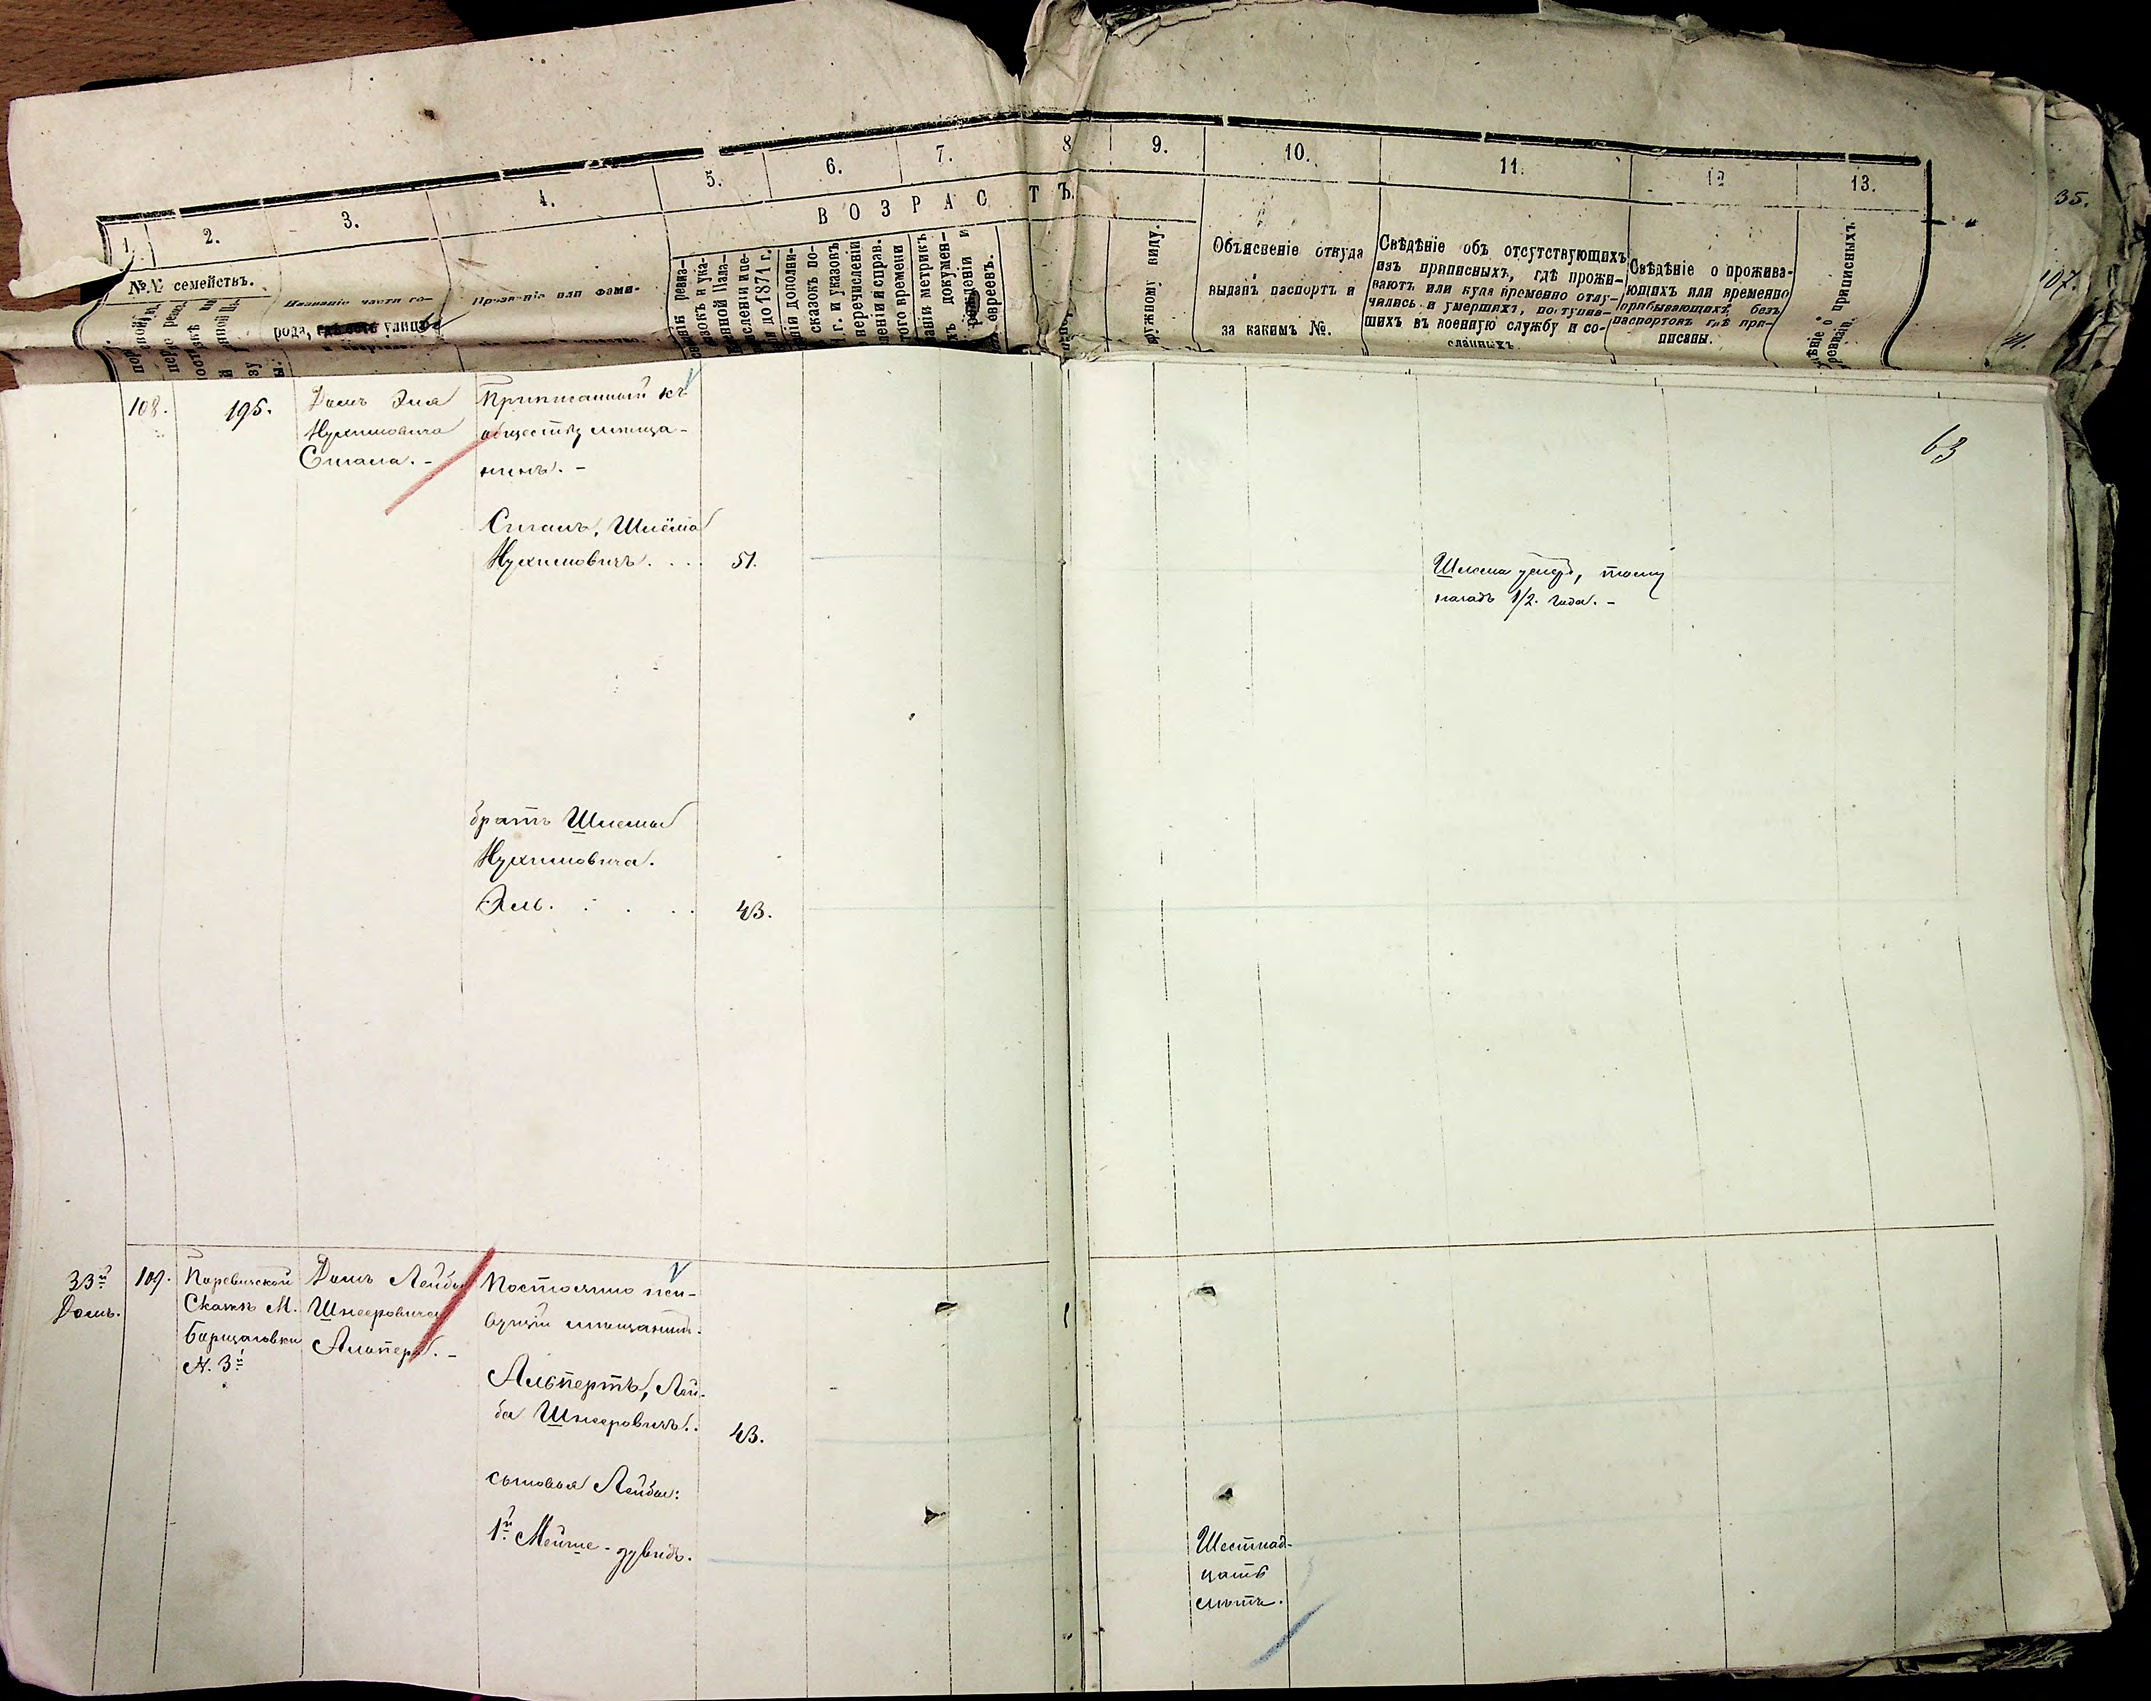 1.
2.
3.
4.
5.
6.
7.
8
9.
10.
11.
12
13.
35.
В О З Р А С Т Ъ.
№№ семействъ.
Названіе части го-
рода, улицъ
Прозваніе или фами-
до 1871 г.
ній дополни-
сказокъ по-
г. и указовъ
перечисленіи
леній и справ.
того времени
ніи метрикъ
хъ докумен-
рожденіи и
евреевъ.
ружному виду.
Объясненіе откуда
выданъ паспортъ и
за какимъ №.
Свѣдѣніе объ отсутствующихъ
изъ приписныхъ, гдѣ прожи-
ваютъ или куда временно отлу-
чились и умершихъ, поступив-
шихъ въ военную службу и со-
сланныхъ.
Свѣдѣніе о прожива-
ющихъ или временно
прибывающихъ, безъ
паспортовъ гдѣ при-
писаны.
107.
41.
63
108.
195.
Домъ Эля
Нухимовича
Сигала. -
Приписанный къ
обществу мѣща-
нинъ. -
Сигалъ, Шлёма
Нухимовичъ. . . .
51.
Шлема умеръ, тому
назадъ 1/2 года. -
братъ Шлемы
Нухимовича.
Эль. . . . .
43.
33й
Домъ.
109.
Паревисской
Сказкѣ М.
Борщаговки
N. 3й
Домъ Лейбы
Шнееровича
Альперъ. -
Постоянно жи-
вущій мѣщанинъ.
Альпертъ, Лей-
ба Шнееровичъ. .
43.
сыновья Лейбы:
1й Мейше - дувидъ.
Шестнад-
цать
лѣтъ.